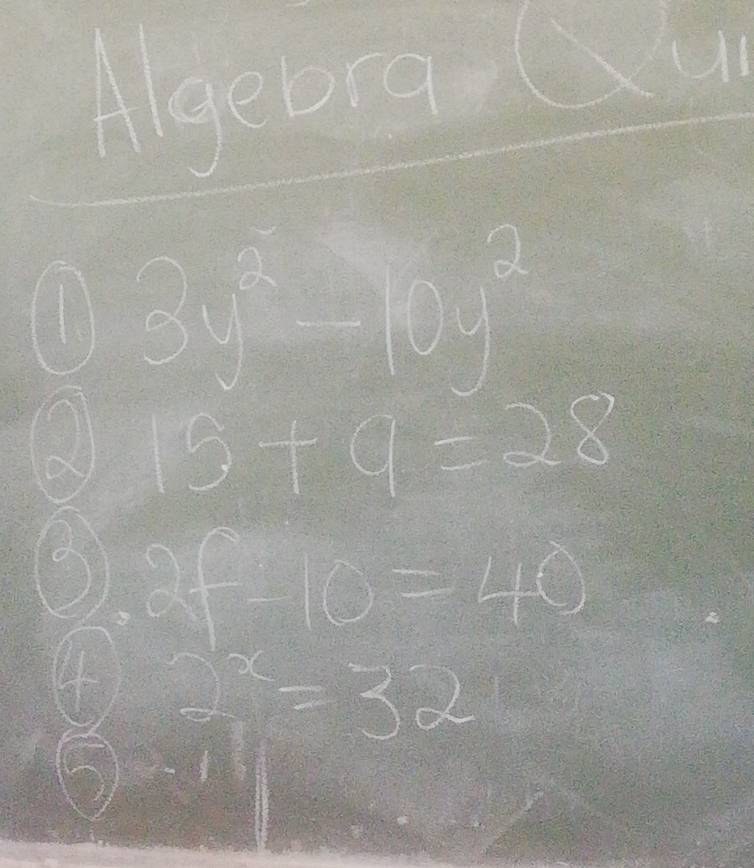 Algebra Qui
① 3y² - 10y²
② 15 + 9 = 28
③. 2f - 10 = 40
④ 2ˣ = 32
⑤